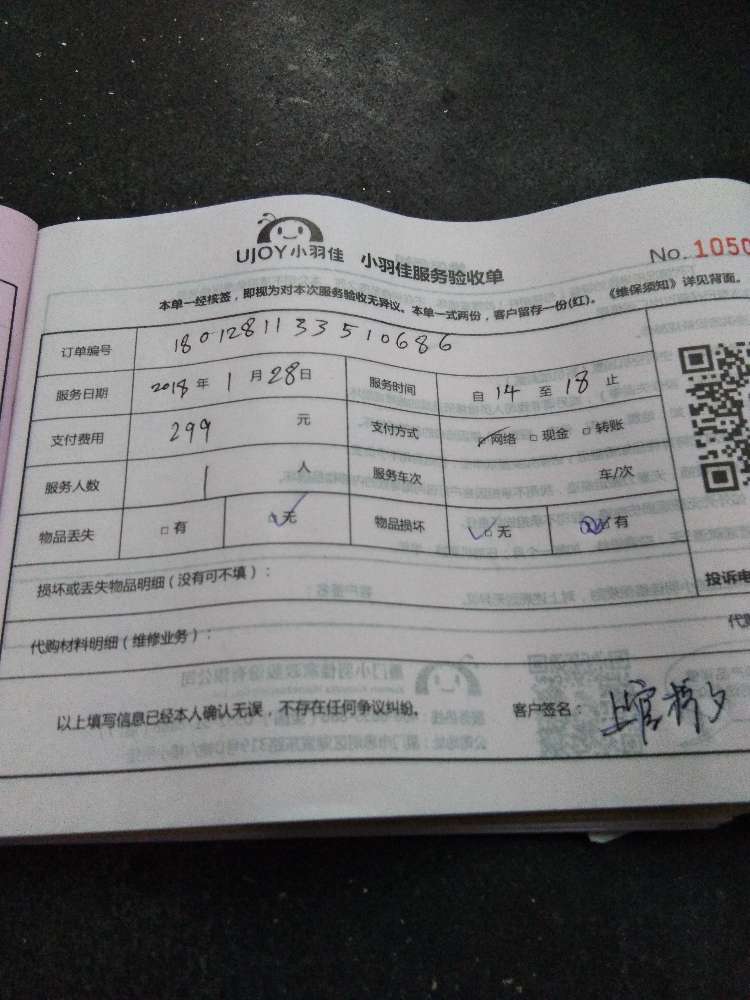 UJOY小羽佳 小羽佳服务验收单 No. 1050
本单一经核签，即视为对本次服务验收无异议。本单一式两份，客户留存一份(红)。《维保须知》详见背面。
订单编号 180128113351068​6
服务日期 2018年1月28日 服务时间 自14至18止
支付费用 299 元 支付方式 网络 □现金 □转账
服务人数 1 人 服务车次 车/次
物品丢失 □有 □无 物品损坏 □无 有
损坏或丢失物品明细(没有可不填)：
投诉电
代购材料明细(维修业务)：
代购
以上填写信息已经本人确认无误，不存在任何争议纠纷。 客户签名：上官